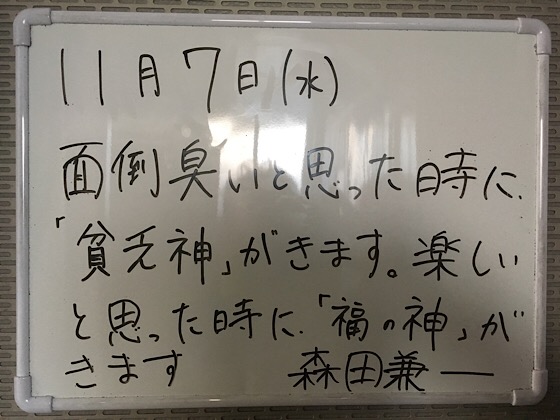 11月7日(水)
面倒臭いと思った時に、
「貧乏神」がきます。楽しい
と思った時に、「福の神」が
きます 森田兼一